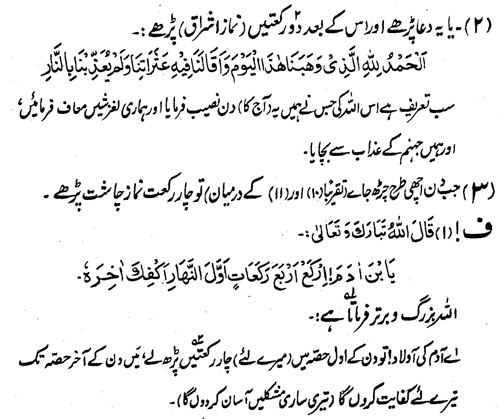 (۲)- یا یہ دعا پڑھے اور اس کے بعد دو رکعتیں (نماز اشراق) پڑھے :-
اَلْحَمْدُ لِلّٰهِ الَّذِیْ وَهَبَنَا هٰذَا الْیَوْمَ وَاَقَالَنَا فِیْهِ عَثَرَاتِنَا وَلَمْ یُعَذِّبْنَا بِالنَّارِ
سب تعریف ہے اس اللہ کی جس نے ہمیں یہ (آج کا) دن نصیب فرمایا اور ہماری لغزشیں معاف فرمائیں،
اور ہمیں جہنم کے عذاب سے بچایا۔
(۳) جب دن اچھی طرح چڑھ جائے (تقریباً (۱۰) اور (۱۱) کے درمیان) تو چار رکعت نماز چاشت پڑھے ۔
ف! (۱) قَالَ اللّٰهُ تَبَارَكَ وَ تَعَالٰی :-
یَا بْنَ اٰدَمَ! اِرْکَعْ اَرْبَعَ رَکَعَاتٍ اَوَّلَ النَّهَارِ اَکْفِكَ اٰخِرَهٗ۔
اللہ بزرگ و برتر فرماتا ہے :-
اے آدم کی اولاد! تو دن کے اول حصہ میں (میرے لئے) چار رکعتیں پڑھ لے، میں دن کے آخر حصہ تک
تیرے لئے کفایت کروں گا (تیری ساری مشکلیں آسان کر دوں گا)۔